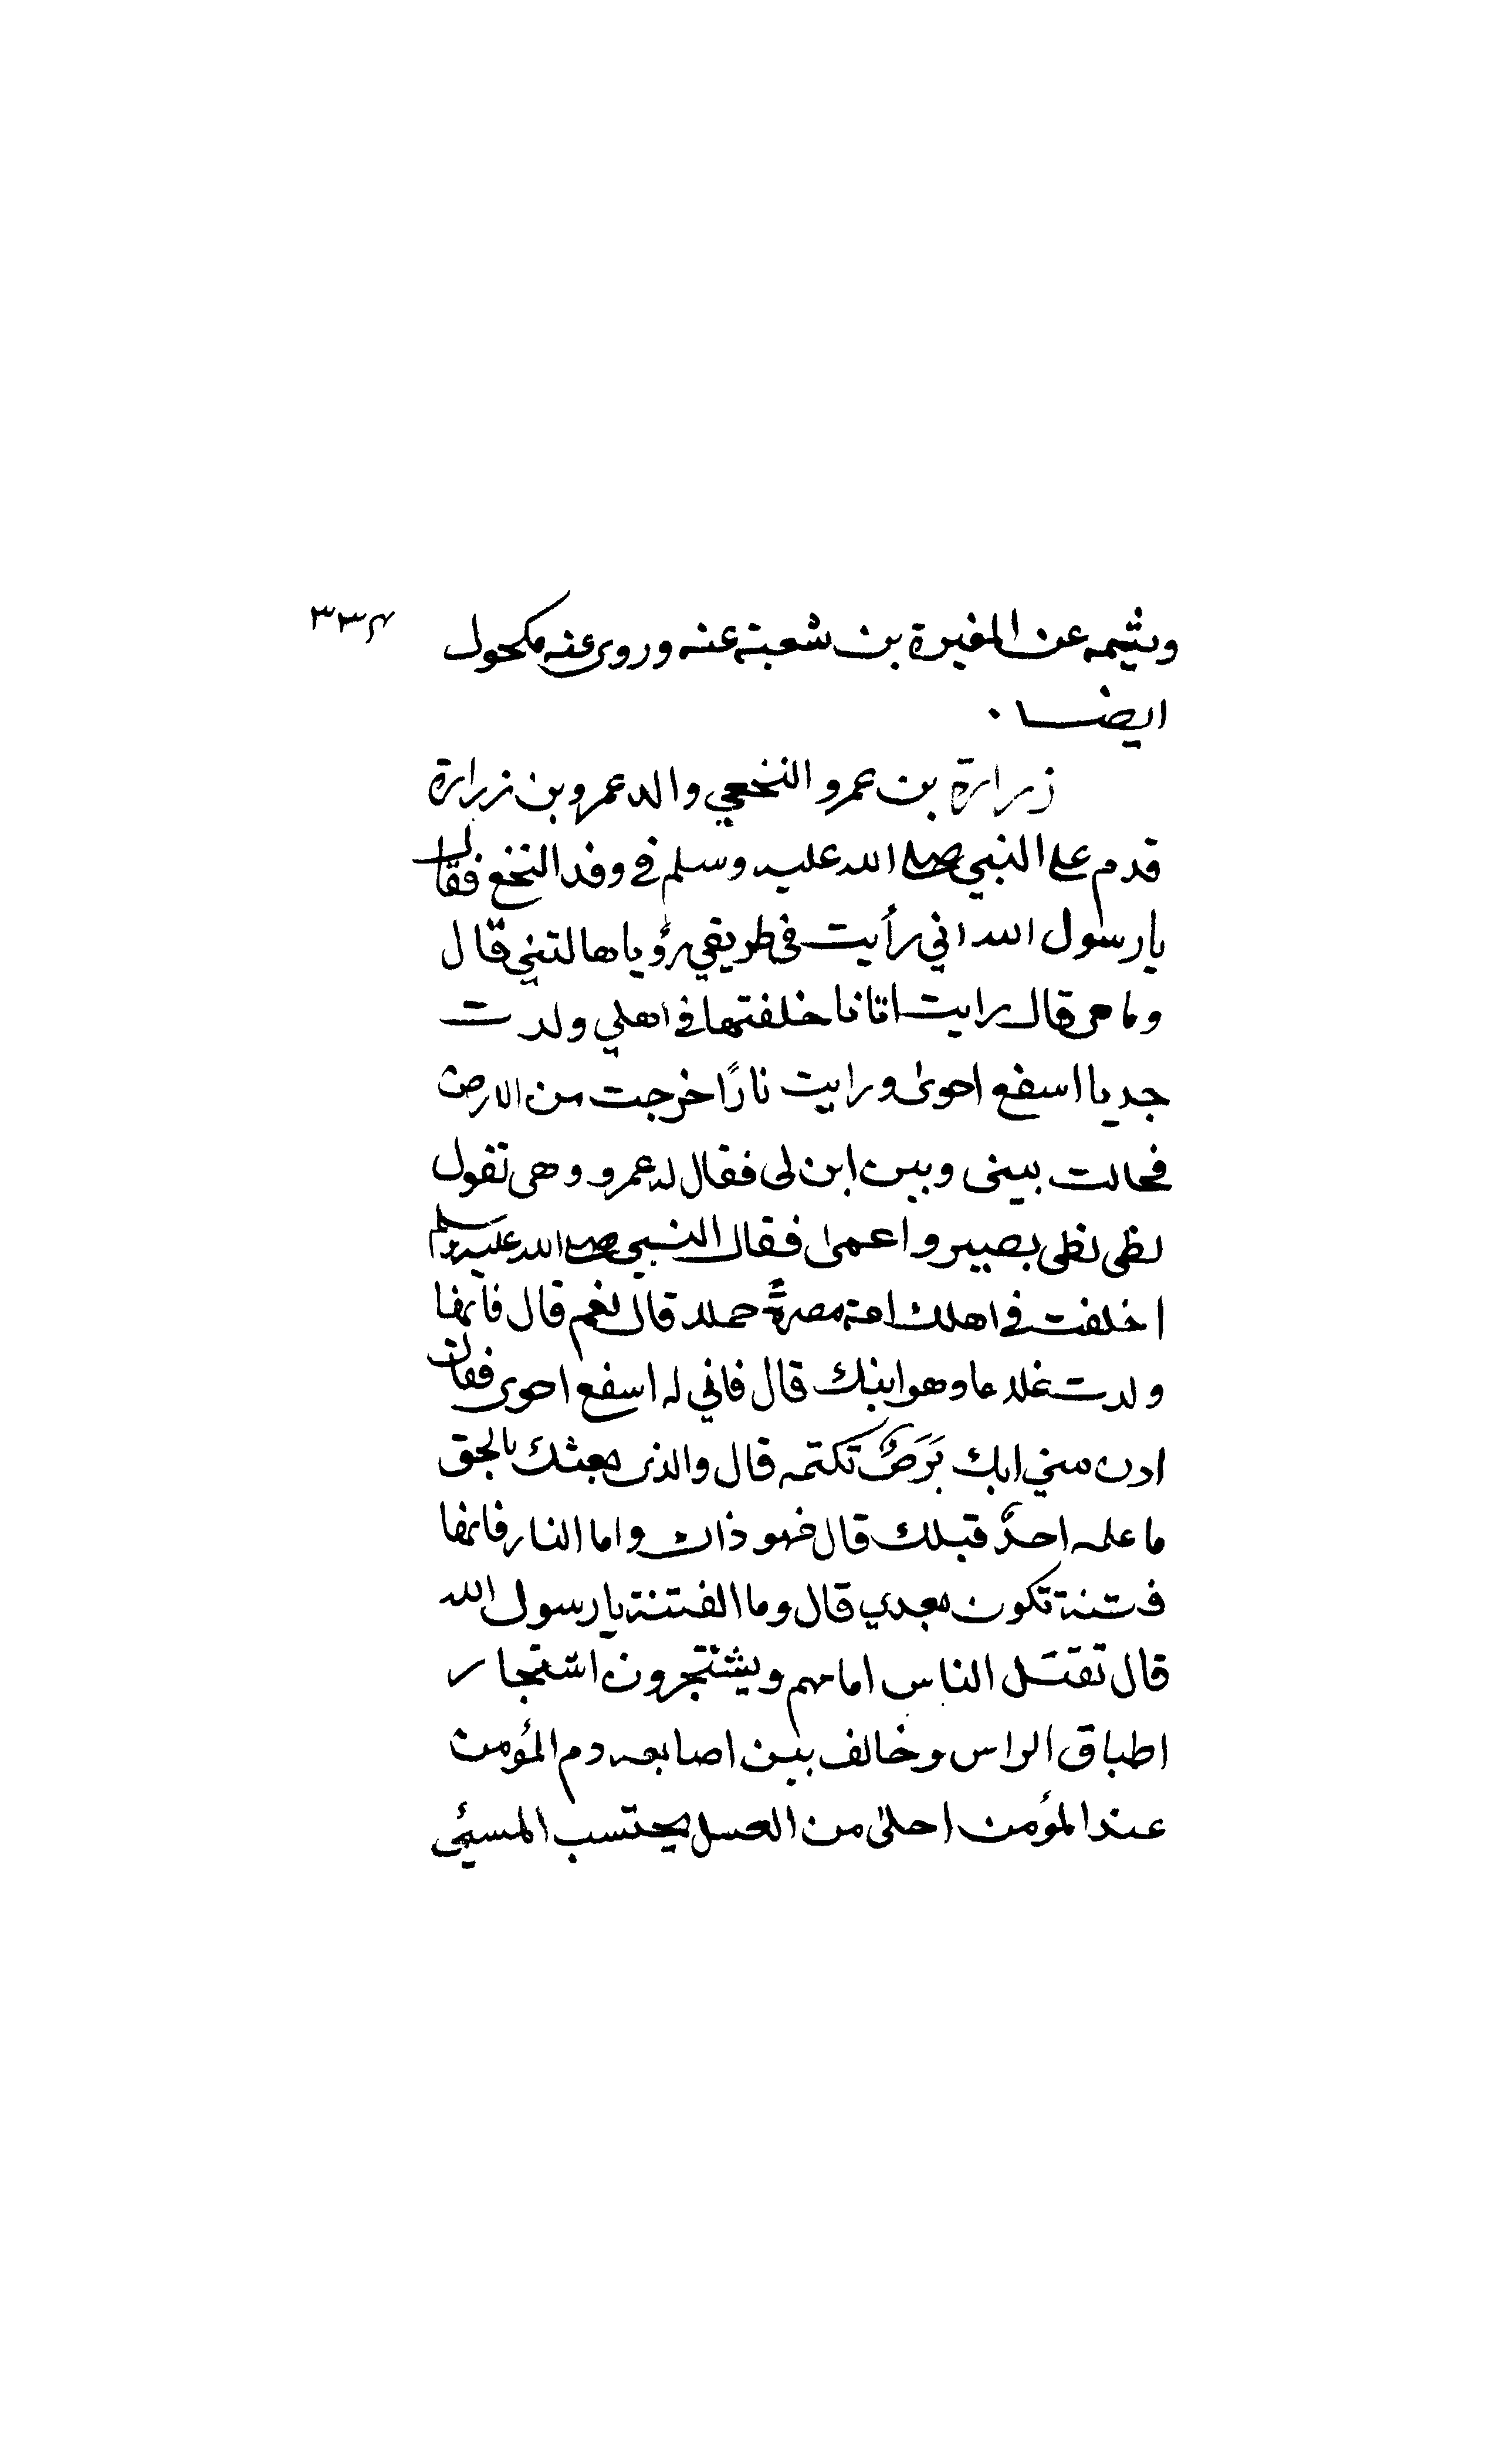 ٣٣٤
وثيمه عن المغيرة بن شعبة عنه وروى عنه مكحول
ايضا ٠
زرارة بن عمرو النخعي والد عمرو بن زرارة
قدم على النبي صلى الله عليه وسلم في وفد النخع فقال
يا رسول الله اني رأيت في طريقي رؤيا هالتني قال
وما هي قال رايت اتانا خلفتها في اهلي ولدت
جديا اسفع احوى ورايت نارًا خرجت من الارض
فحالت بيني وبين ابن لى فقال له عمرو وهى تقول
لظى لظى بصير واعمى فقال النبي صلى الله عليه وسلم
اخلفت في اهلك امة مصرةً حملا قال نعم قال فانها
ولدت غلاما وهو ابنك قال فاني له اسفع احوى فقال
ادن مني ابك بَرَصٌ تكتمه قال والذى بعثك بالحق
ما علمه احدٌ قبلك قال فهو ذاك واما النار فانها
فتنة تكون بعدي قال وما الفتنة يا رسول الله
قال تقتل الناس امامهم ويشتجرون اشتجار
اطباق الراس وخالف بين اصابعه دم المؤمن
عند المؤمن احلى من العسل يحتسب المسيئ